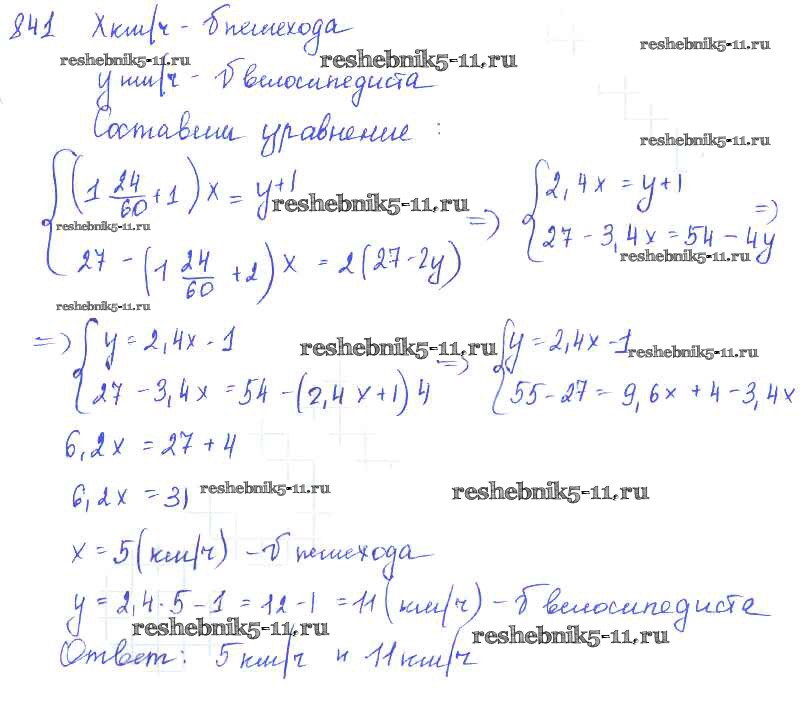 841 X км/ч - v пешехода
reshebnik5-11.ru reshebnik5-11.ru reshebnik5-11.ru
y км/ч - v велосипедиста
Составим уравнение :
reshebnik5-11.ru
{ (1 24/60 + 1) x = y+1 => { 2,4x = y+1 =>
reshebnik5-11.ru reshebnik5-11.ru
27 - (1 24/60 + 2) x = 2(27-2y) 27 - 3,4x = 54 - 4y
reshebnik5-11.ru
reshebnik5-11.ru
=> { y = 2,4x - 1 => { y = 2,4x - 1
reshebnik5-11.ru reshebnik5-11.ru
27 - 3,4x = 54 - (2,4x+1) 4 55 - 27 = 9,6x + 4 - 3,4x
6,2x = 27 + 4
6,2x = 31
reshebnik5-11.ru reshebnik5-11.ru
x = 5 (км/ч) - v пешехода
y = 2,4 · 5 - 1 = 12 - 1 = 11 (км/ч) - v велосипедиста
reshebnik5-11.ru reshebnik5-11.ru
Ответ: 5 км/ч и 11 км/ч